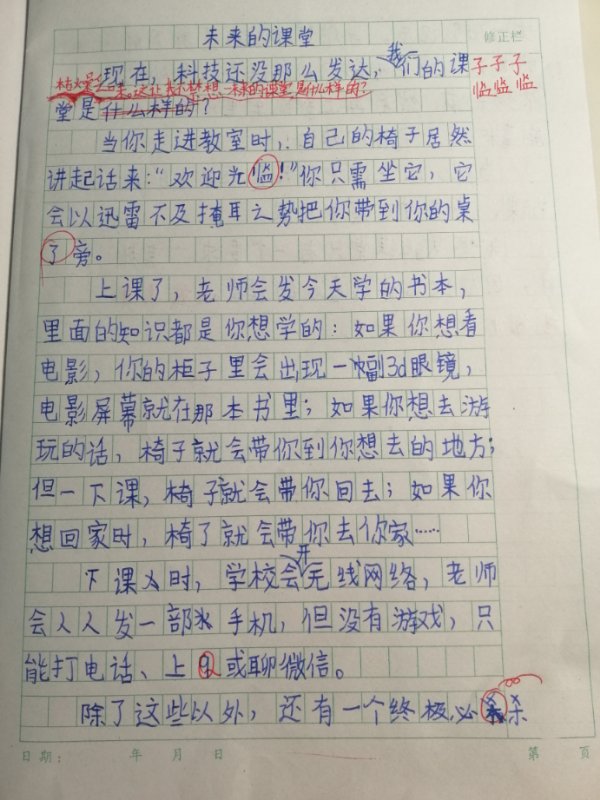 未来的课堂
修正栏
现在，科技还没那么发达，我们的课
子子子
临临临
来。这让我不禁想，未来的课堂是什么样的？
堂是什么样的？
当你走进教室时，自己的椅子居然
讲起话来：“欢迎光临！”你只需坐它，它
会以迅雷不及掩耳之势把你带到你的桌
了旁。
上课了，老师会发今天学的书本，
里面的知识都是你想学的：如果你想看
电影，你的柜子里会出现一幅3d眼镜，
电影屏幕就在那本书里；如果你想去游
玩的话，椅子就会带你到你想去的地方；
但一下课，椅子就会带你回去；如果你
想回家时，椅了就会带你去你家……
下课时，学校会开无线网络，老师
会人人发一部手机，但没有游戏，只
能打电话、上q或聊微信。
除了这些以外，还有一个终极必杀
日期： 年 月 日
第 页